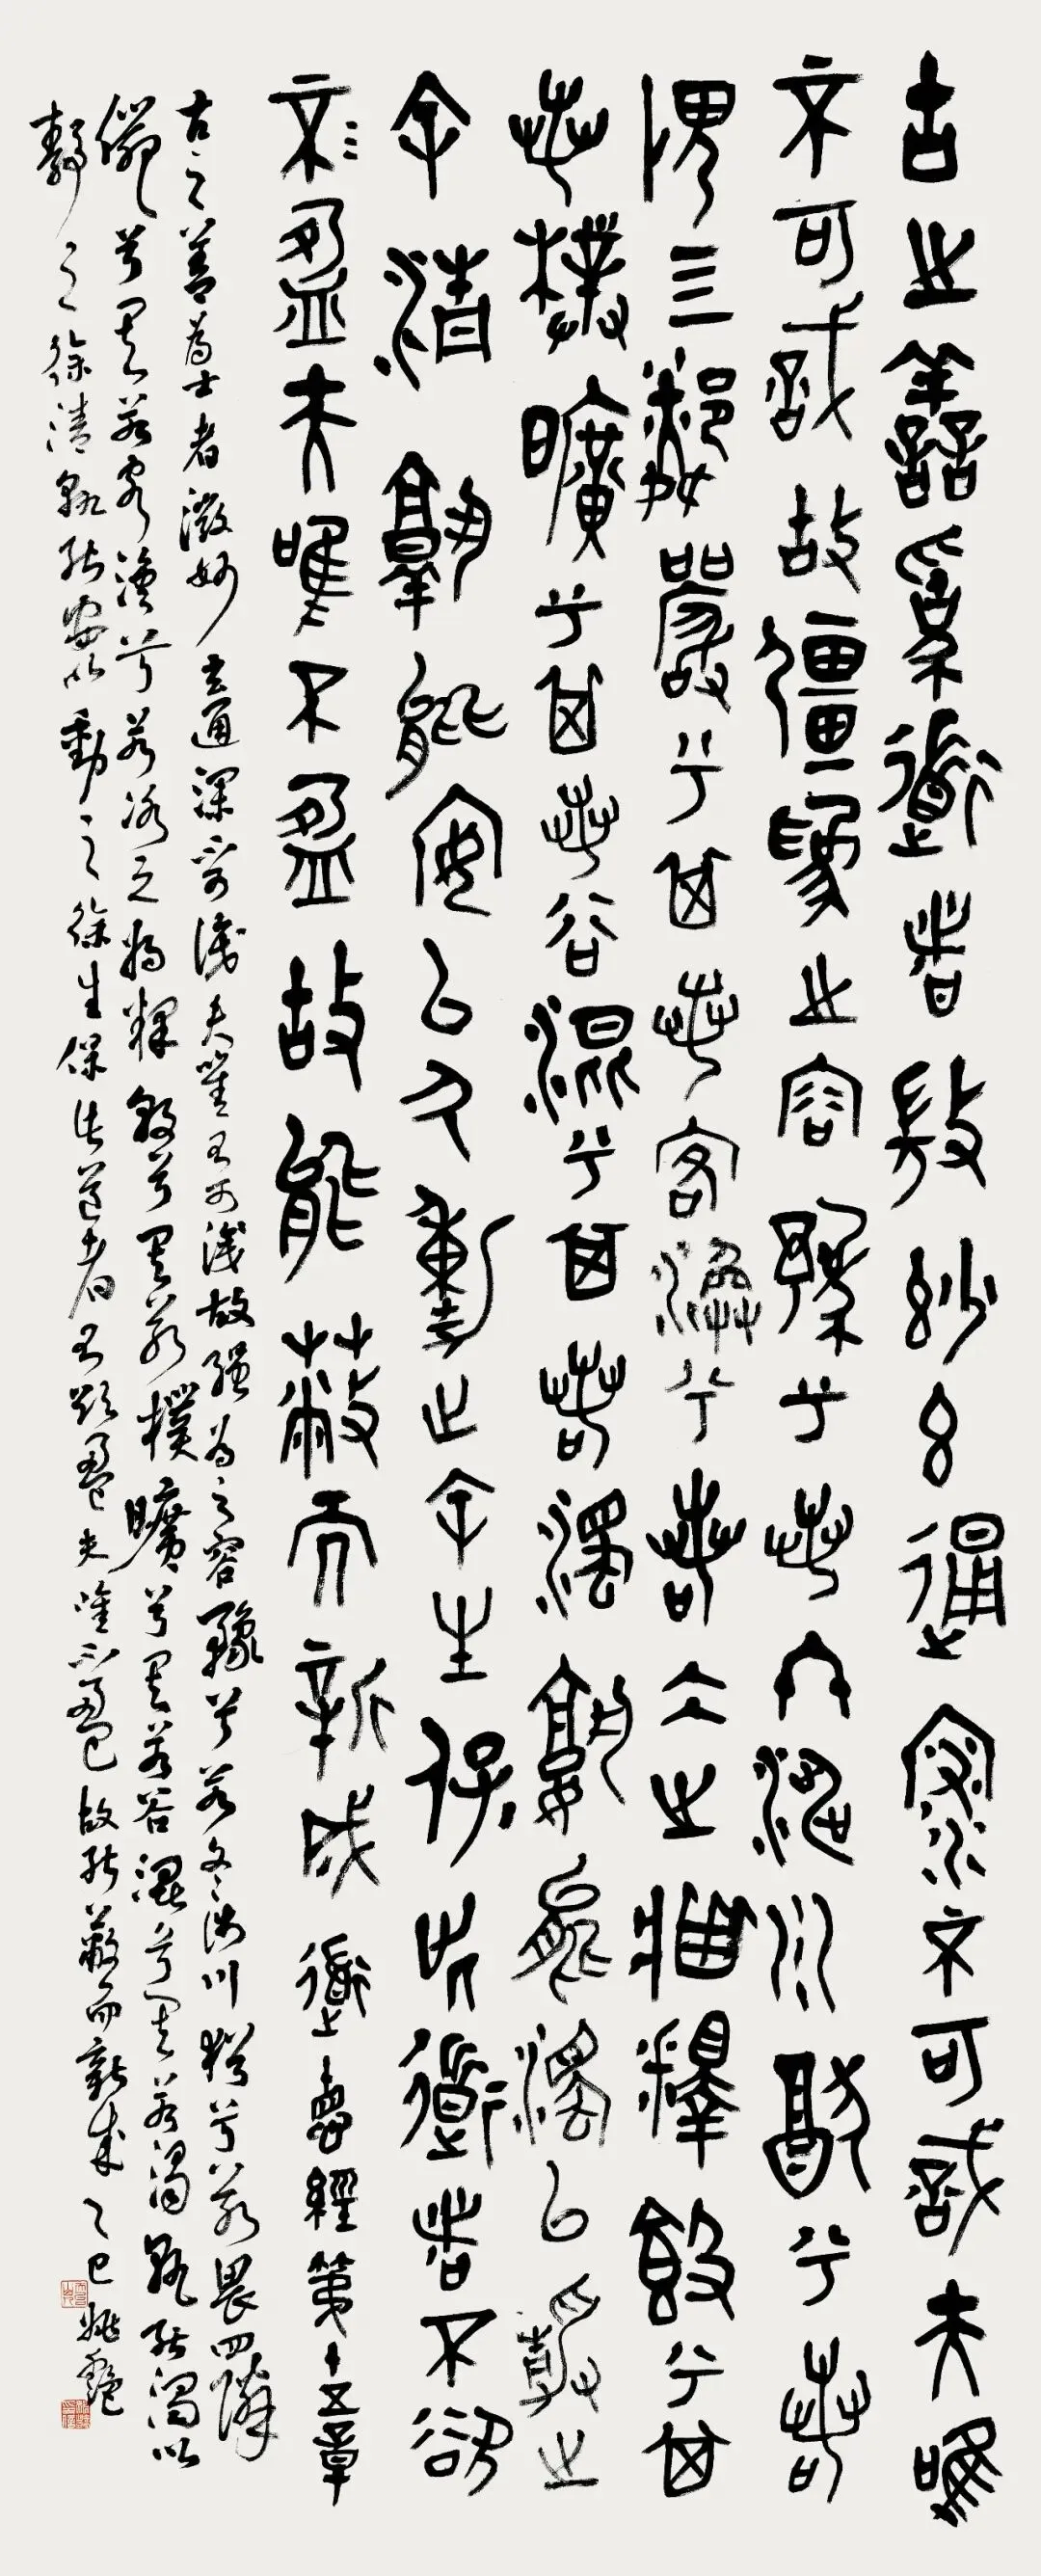 古之善為道者微妙玄通深不可識夫唯
不可識故強為之容豫兮若冬涉川猶兮若
畏四鄰嚴兮其若客渙兮若冰之將釋敦兮其
若樸曠兮其若谷混兮其若濁孰能濁以靜之
徐清孰能安以久動之徐生保此道者不欲
盈夫唯不盈故能蔽而新成道德經第十五章
古之善為士者微妙玄通深不可識夫唯不可識故強為之容豫兮若冬涉川猶兮若畏四鄰
儼兮其若客渙兮若冰之將釋敦兮其若樸曠兮其若谷混兮其若濁孰能濁以
靜之徐清孰能安以動之徐生保此道者不欲盈夫唯不盈故能蔽而新成乙巳